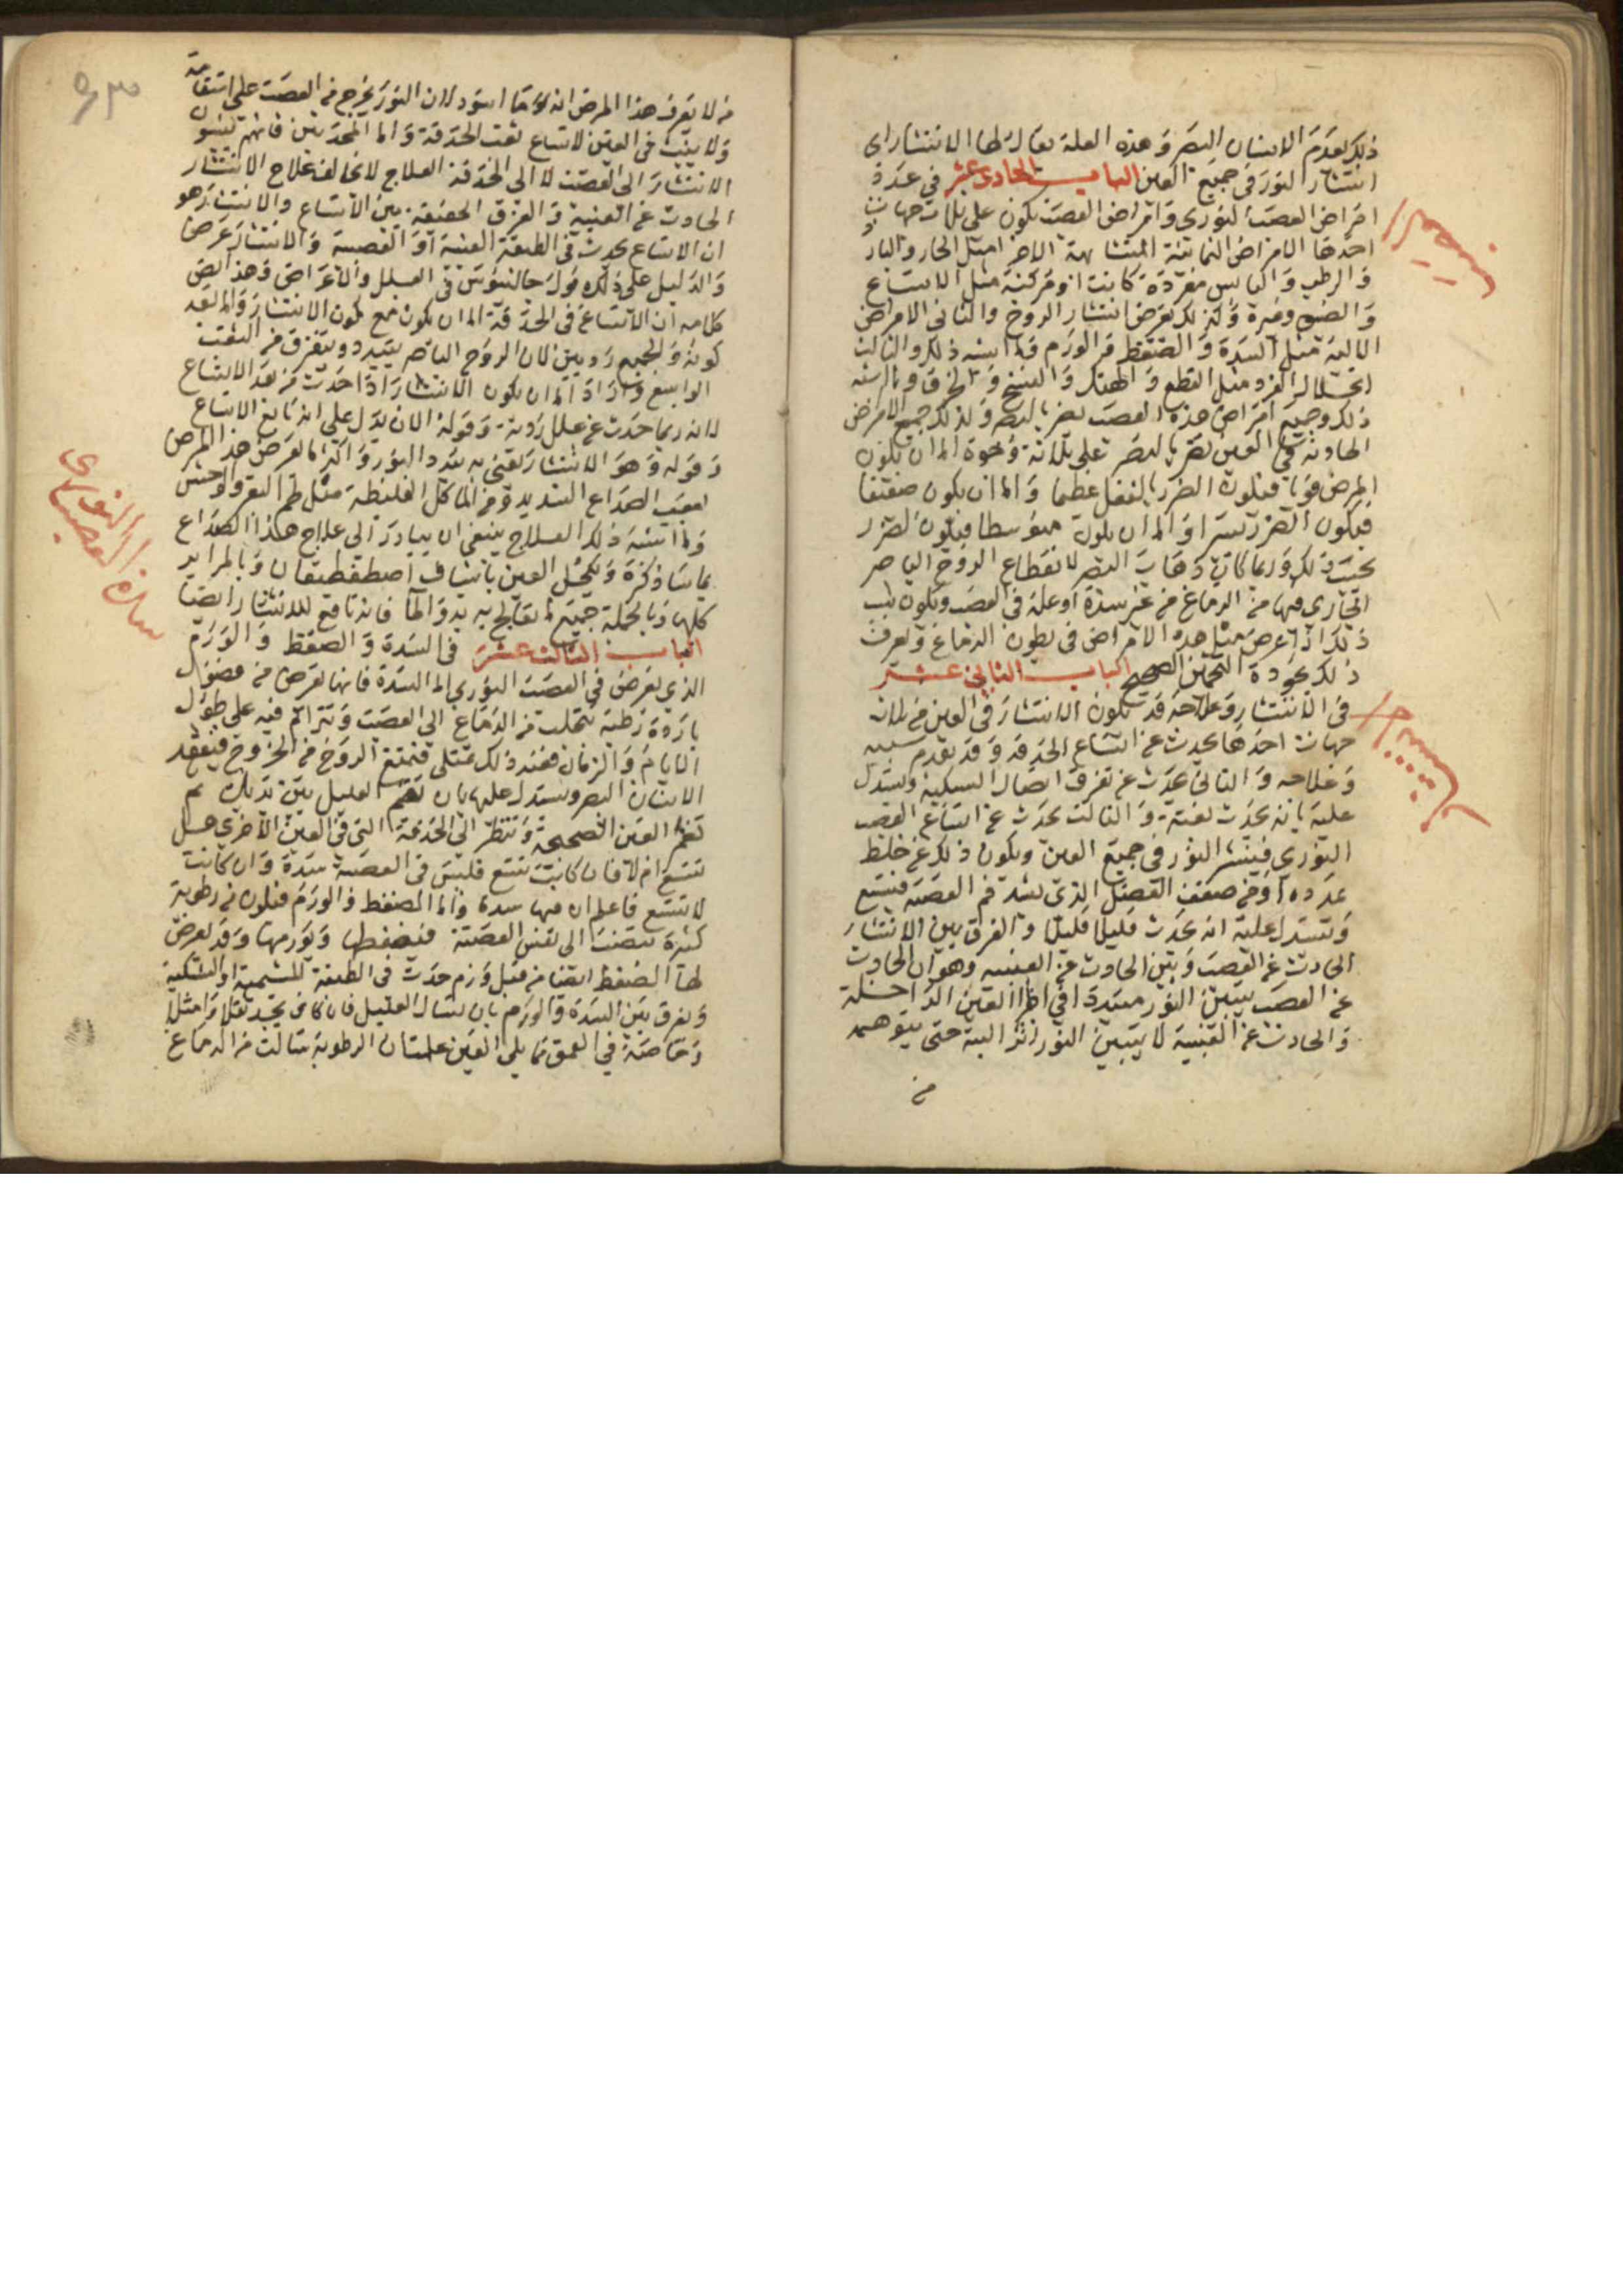 ذلك يعدم الانسان البصر وهذه العلة يقال لها الانتشار اى
انتشار النور فى جميع العين الباب الحادى عشر فى عدة
امراض العصب النورى وامراض العصب يكون على ثلاث جهات
احدها الامراض الثمانية المتشابهة الاجزا مثل الحار والبارد
والرطب واليابس مفردة كانت او مركبة مثل الاتساع
والضيق وغيره وكذلك تعرض انتشار الروح والثانى الامراض
الالية مثل السدة والضغط والورم وما اشبه ذلك والثالث
انحلال الفرد مثل القطع والهتك والفسخ والخرق وما اشبه
ذلك وجميع امراض هذه العصب تضر بالبصر وكذلك جميع الامراض
الحادثة فى العين تضر بالبصر على ثلاثة وجوه اما ان يكون
المرض قويا فيكون الضرر بالفعل عظيما واما ان يكون ضعيفا
فيكون الضرر يسيرا واما ان يكون متوسطا فيكون الضرر
بحسب ذلك وربما كان ذهاب البصر لانقطاع الروح الباصر
الجارى فيها من الدماغ من غير سدة او علة فى العصب ويكون سبب
ذلك اذا عرض مثل هذه الامراض فى بطون الدماغ وتعرف
ذلك بجودة التخمين الصحيح الباب الثانى عشر
فى الانتشار وعلاجه قد يكون الانتشار فى العين من ثلاث
جهات احدها يحدث عن اتساع الحدقة وقد تقدم سببه
وعلاجه والثانى يحدث عن تفرق اتصال الشبكية ويستدل
عليه بانه يحدث بغتة والثالث يحدث عن اتساع العصب
النورى فينتشر النور فى جميع العين ويكون ذلك عن خلط
يمدده او من ضعف العضل الذى يشد فم العصبة فيتسع
ويستدل عليه انه يحدث قليلا قليلا والفرق بين الانتشار
الحادث عن العصب وبين الحادث عن العنبيه وهو ان الحادث
عن العصب يتبين النور مبددا فى اقطار العين الداخلة
والحادث عن العنبية لا يتبين النور اثر البتة حتى يتوهم
من
من لا يعرف هذا المرض انه ما اسود لان النور يخرج من العصب على استقامة
ولا ينبث فى العين لاتساع ثقب الحدقة واما المحدثين فانهم ينسبون
الانتشار الى العصب لا الى الحدقة العلاج لا تخالف علاج الانتشار
الحادث عن العنبية والفرق الحقيقة بين الاتساع والانتشار هو
ان الاتساع يحدث فى الطبقة العنبية او العصبية والانتشار عرض
والدليل على ذلك قول جالينوس فى العلل والاعراض وهذا نص
كلامه ان الاتساع فى الحدقة اما ان يكون مع كون الانتشار واما بعد
كونه والجميع رديين لان الروح الباصر يتبدد ويتفرق من الثقب
الواسع واراد اما ان يكون الانتشار اذا حدث من بعد الاتساع
لانه ربما حدث عن علل ردية وقوله الان يدل على انه تابع الاتساع
وقوله وهو الانتشار يعنى به تبدد النور واكثر ما يعرض هذا المرض
بعقب الصداع الشديد ومن المآكل الغليظة مثل لحم البقر والوحش
وما اشبه ذلك العلاج ينبغى ان يبادر الى علاج هذا الصداع
بما سنا ذكره ويكحل العين باشياف اصطفطيقان وبالمراير
كلها وبالجملة جميع ما يعالج به بدو الما فانه نافع للانتشار ايضا
الباب الثالث عشر فى السدة والضغط والورم
الذى يعرض فى العصب النورى اما السدة فانها تعرض من فضول
باردة رطبة تتحلب من الدماغ الى العصب وتتراكم فيه على طول
الايام والزمان فعند ذلك تمتلى فتمنع الروح من الخروج فيفقد
الانسان البصر ويستدل عليها بان تقيم العليل بين يديك ثم
تغمز العين الصحيحة وتنظر الى الحدقة التى فى العين الاخرى هل
تتسع ام لا فان كانت تتسع فليس فى العصبة سدة وان كانت
لا تتسع فاعلم ان فيها سدة واما الضغط والورم فيكون من رطوبة
كثيرة تنصب الى نفس العصبة فيضغطها وتورمها وقد يعرض
لها الضغط ايضا من قبل ورم حدث فى الطبقة المشيمية او الشبكية
ويفرق بين السدة والورم بان يسال العليل فان كان يجد ثقلا وامتلا
وخاصة فى العمق مما يلى العين علمت ان الرطوبة سالت من الدماغ
النورى